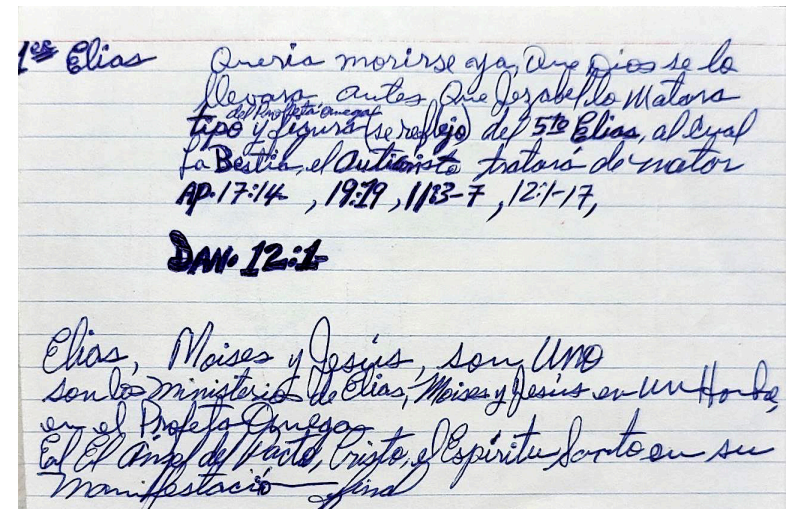 1er Elias Queria morirse ya, Que Dios se lo
llevara antes que Jezabel lo Matara
del Profeta Omega
tipo y figura (se reflejo) del 5to Elias, al cual
La Bestia, el Anticristo tratará de matar
AP. 17:14 , 19:19 , 11:3-7 , 12:1-17,
DAN. 12:1
Elias, Moises y Jesús, son Uno
son los ministerios de Elias, Moises y Jesús en un Hombre,
en el Profeta Omega
El Angel del Pacto, Cristo, el Espíritu Santo en su
Manifestación final